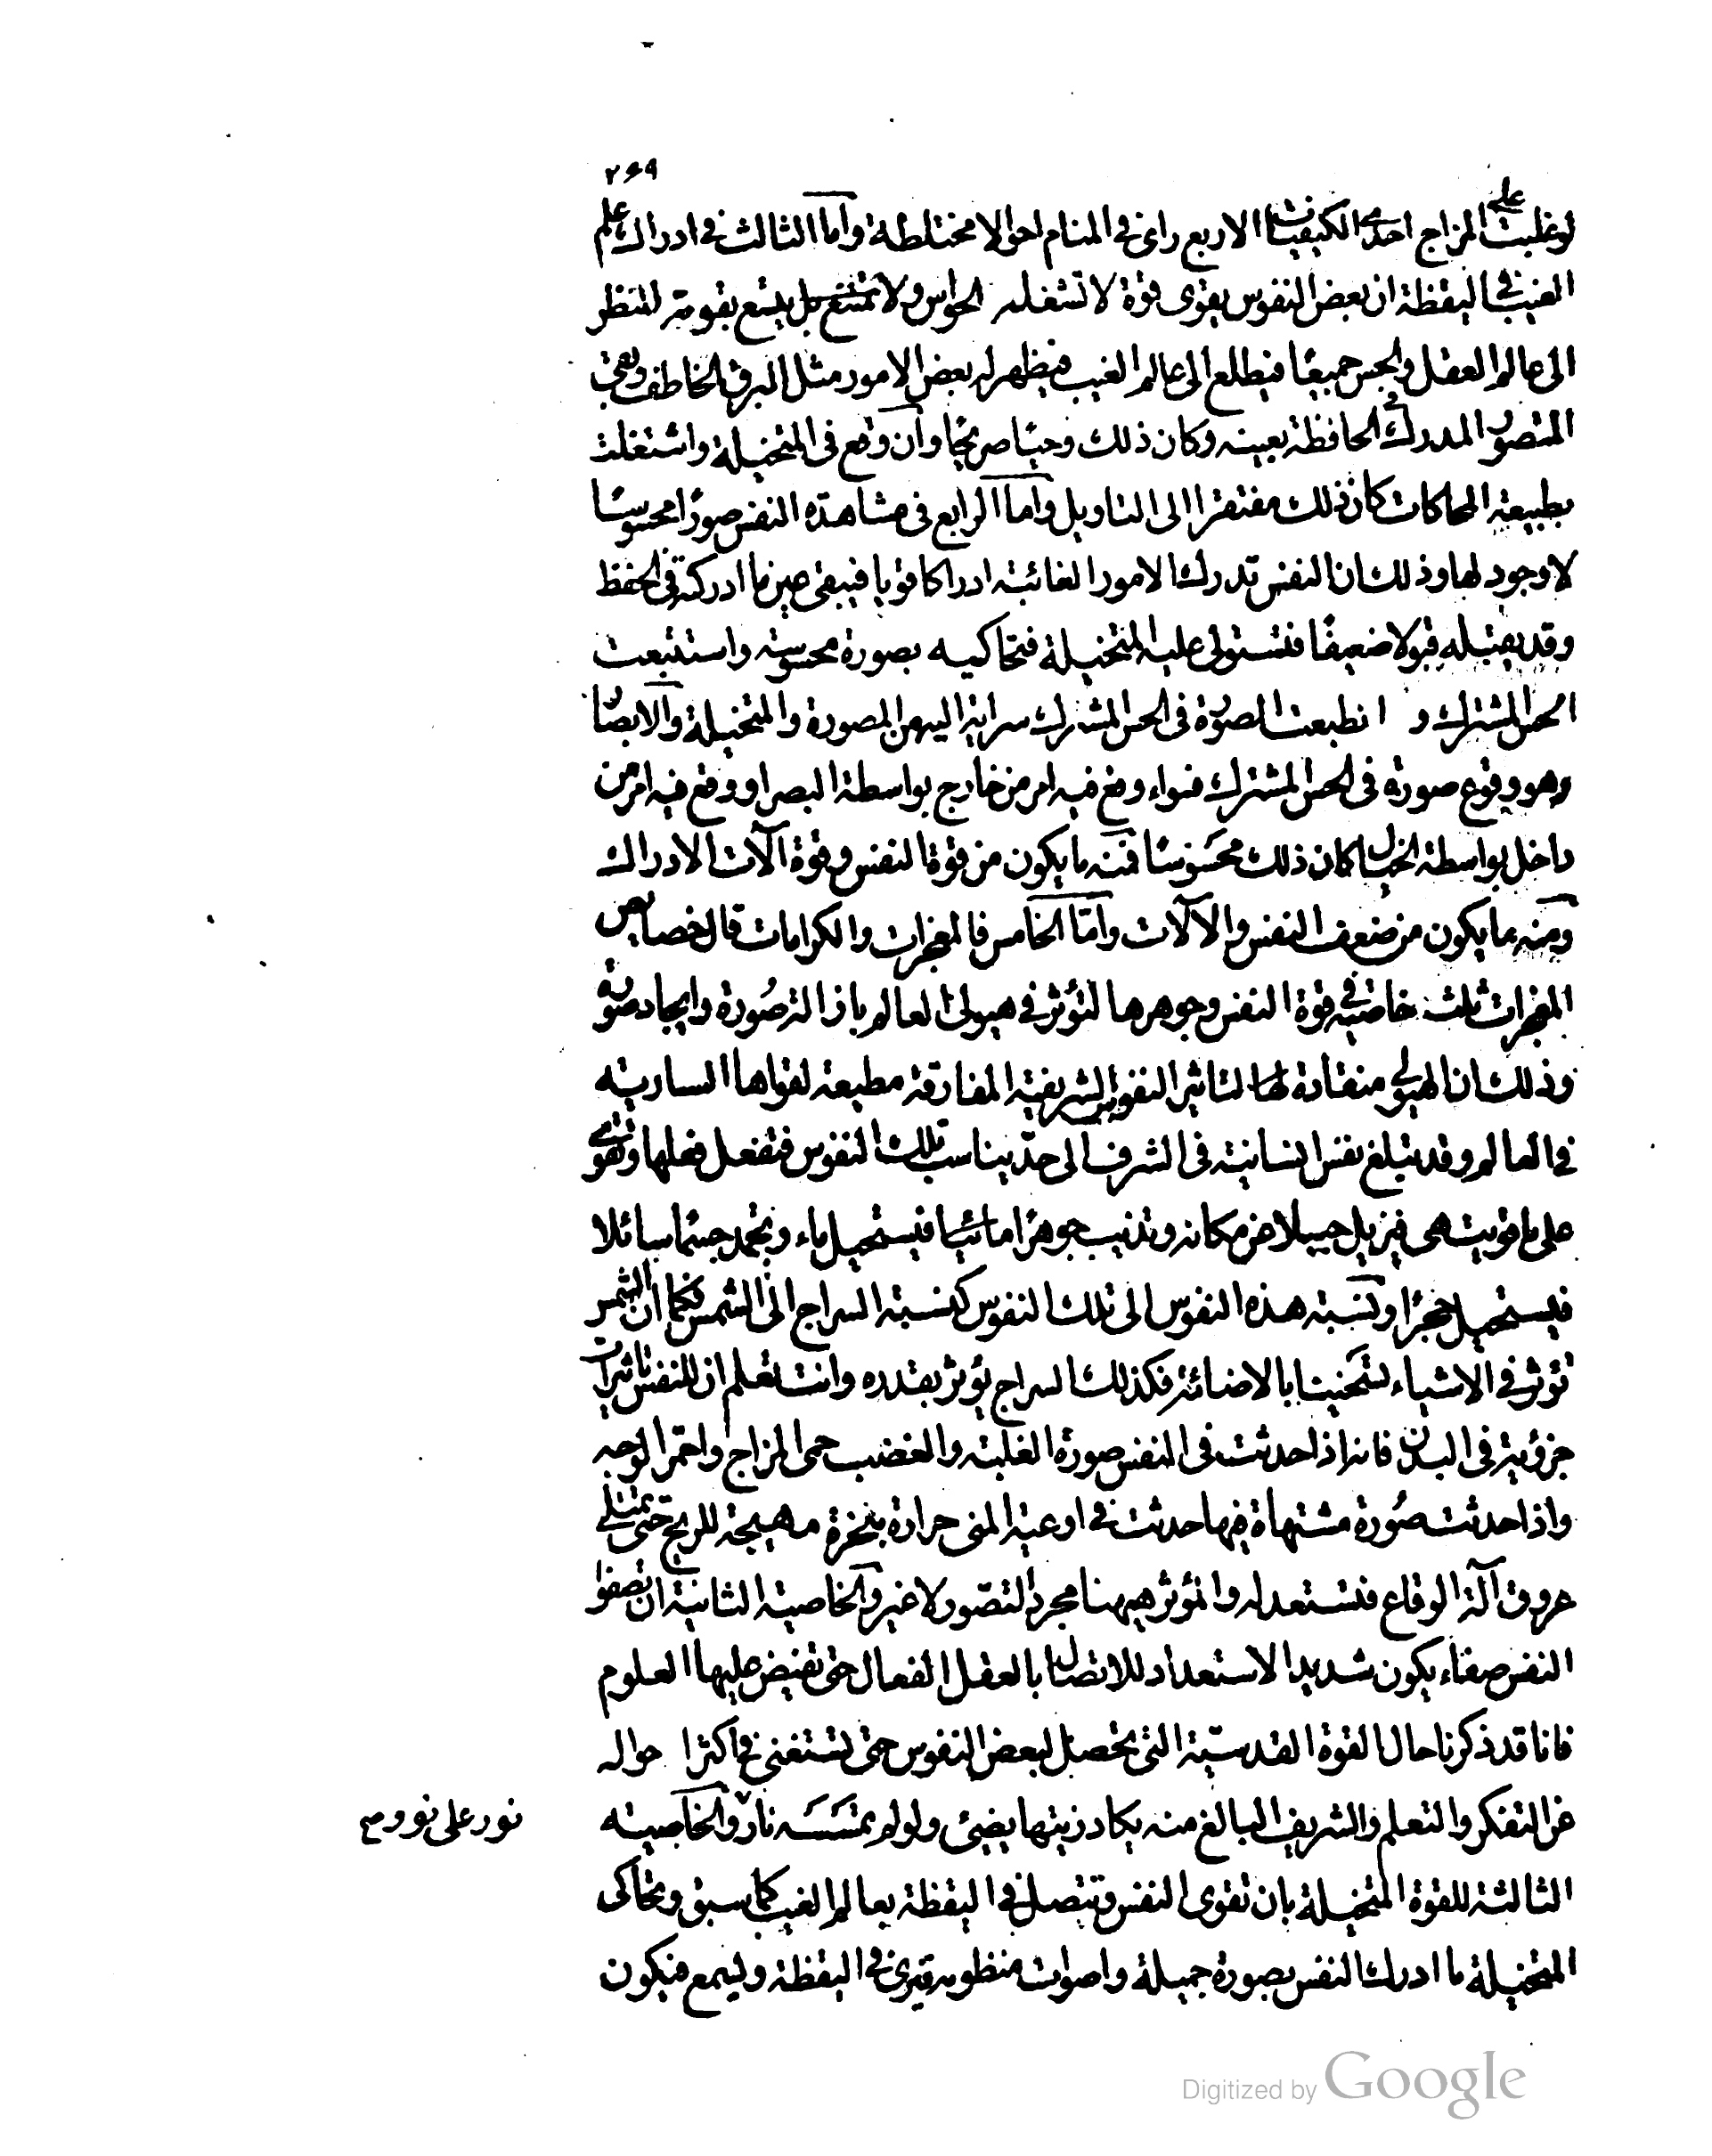 ٢٦٩
لو غلبت على المزاج احدى الكيفيات الاربع راى فى المنام احوالا مختلطة واما الثالث فى ادراك علم
الغيب فى اليقظة ان بعض النفوس يقوى قوة لا تشغله الحواس ولا تمنع بل يتسع بقوته للنظر
الى عالم العقل والحس جميعًا فيطلع الى عالم الغيب فيظهر له بعض الامور مثل البرق الخاطف وبقى
المتصور المدرك فى الحافظة بعينه وكان ذلك وحيًا صريحًا وان وقع فى المتخيلة واشتغلت
بطبيعة المحاكات كان ذلك مفتقرا الى التاويل واما الرابع فى مشاهدة النفس صورًا محسوسة
لا وجود لها وذلك ان النفس تدرك الامور الغائبة ادراكا قويا فيبقى عين ما ادركته فى الحفظ
وقد يقبله قبولا ضعيفًا فتستولى عليه المتخيلة فتحاكيه بصورة محسوسة واستتبعت
الحس المشترك و انطبعت الصورة فى الحس المشترك سراية اليه من المصورة والمتخيلة والابصار
وهو وقوع صورة فى الحس المشترك فسواء وقع فيه امر من خارج بواسطة البصر او وقع فيه امر من
داخل بواسطة الخيال كان ذلك محسوسًا فمنه ما يكون من قوة النفس وقوة آلات الادراك
ومنه ما يكون من ضعف النفس والآلات واما الخامس فالمعجزات والكرامات قال خصايص
المعجزات ثلث خاصية فى قوة النفس وجوهرها لتؤثر فى هيولى العالم بازالة صورة وايجاد صورة
وذلك ان الهيولى منقادة لتاثير النفوس الشريفة المفارقة مطيعة لقواها السارية
فى العالم وقد تبلغ نفس انسانية فى الشرف الى حد يناسب تلك النفوس فتفعل فعلها وتقوى
على ما قويت هى فيزيل جبلا عن مكانه وتذيب جوهرًا مائيا فيستحيل ماء ويجمد جسما سائلا
فيستحيل حجرا ونسبة هذه النفوس الى تلك النفوس كنسبة السراج الى الشمس فكما ان الشمس
تؤثر فى الاشياء تسخينا بالاضائة فكذلك السراج يؤثر بقدره وانت تعلم ان للنفس تاثيرات
جزؤية فى البدن فانه اذا حدثت فى النفس صورة الغلبة والغضب حمى المزاج واحمر الوجه
واذا حدثت صورة مشتهاة فيها حدثت فى اوعية المنى حرارة مبخرة مهيجة للريح حتى تمتلى
عروق آلة الوقاع فتستعد له والمؤثر هيهنا مجرد التصور لا غير والخاصية الثانية ان تصفوا
النفس صفاء يكون شديد الاستعداد للاتصال بالعقل الفعال حتى تفيض عليها العلوم
فانا قد ذكرنا حال القوة القدسية التى تحصل لبعض النفوس حتى تستغنى فى اكثر احواله
عن التفكر والتعلم والشريف البالغ منه يكاد زيتها يضيئ ولو لم تمسسه نار والخاصية
نور على نور
الثالثة للقوة المتخيلة بان تقوى النفس وتتصل فى اليقظة بعالم الغيب كما سبق وتحاكى
المتخيلة ما ادرك النفس بصورة جميلة واصوات منظومة فيرى فى اليقظة ويسمع فيكون
Digitized by Google